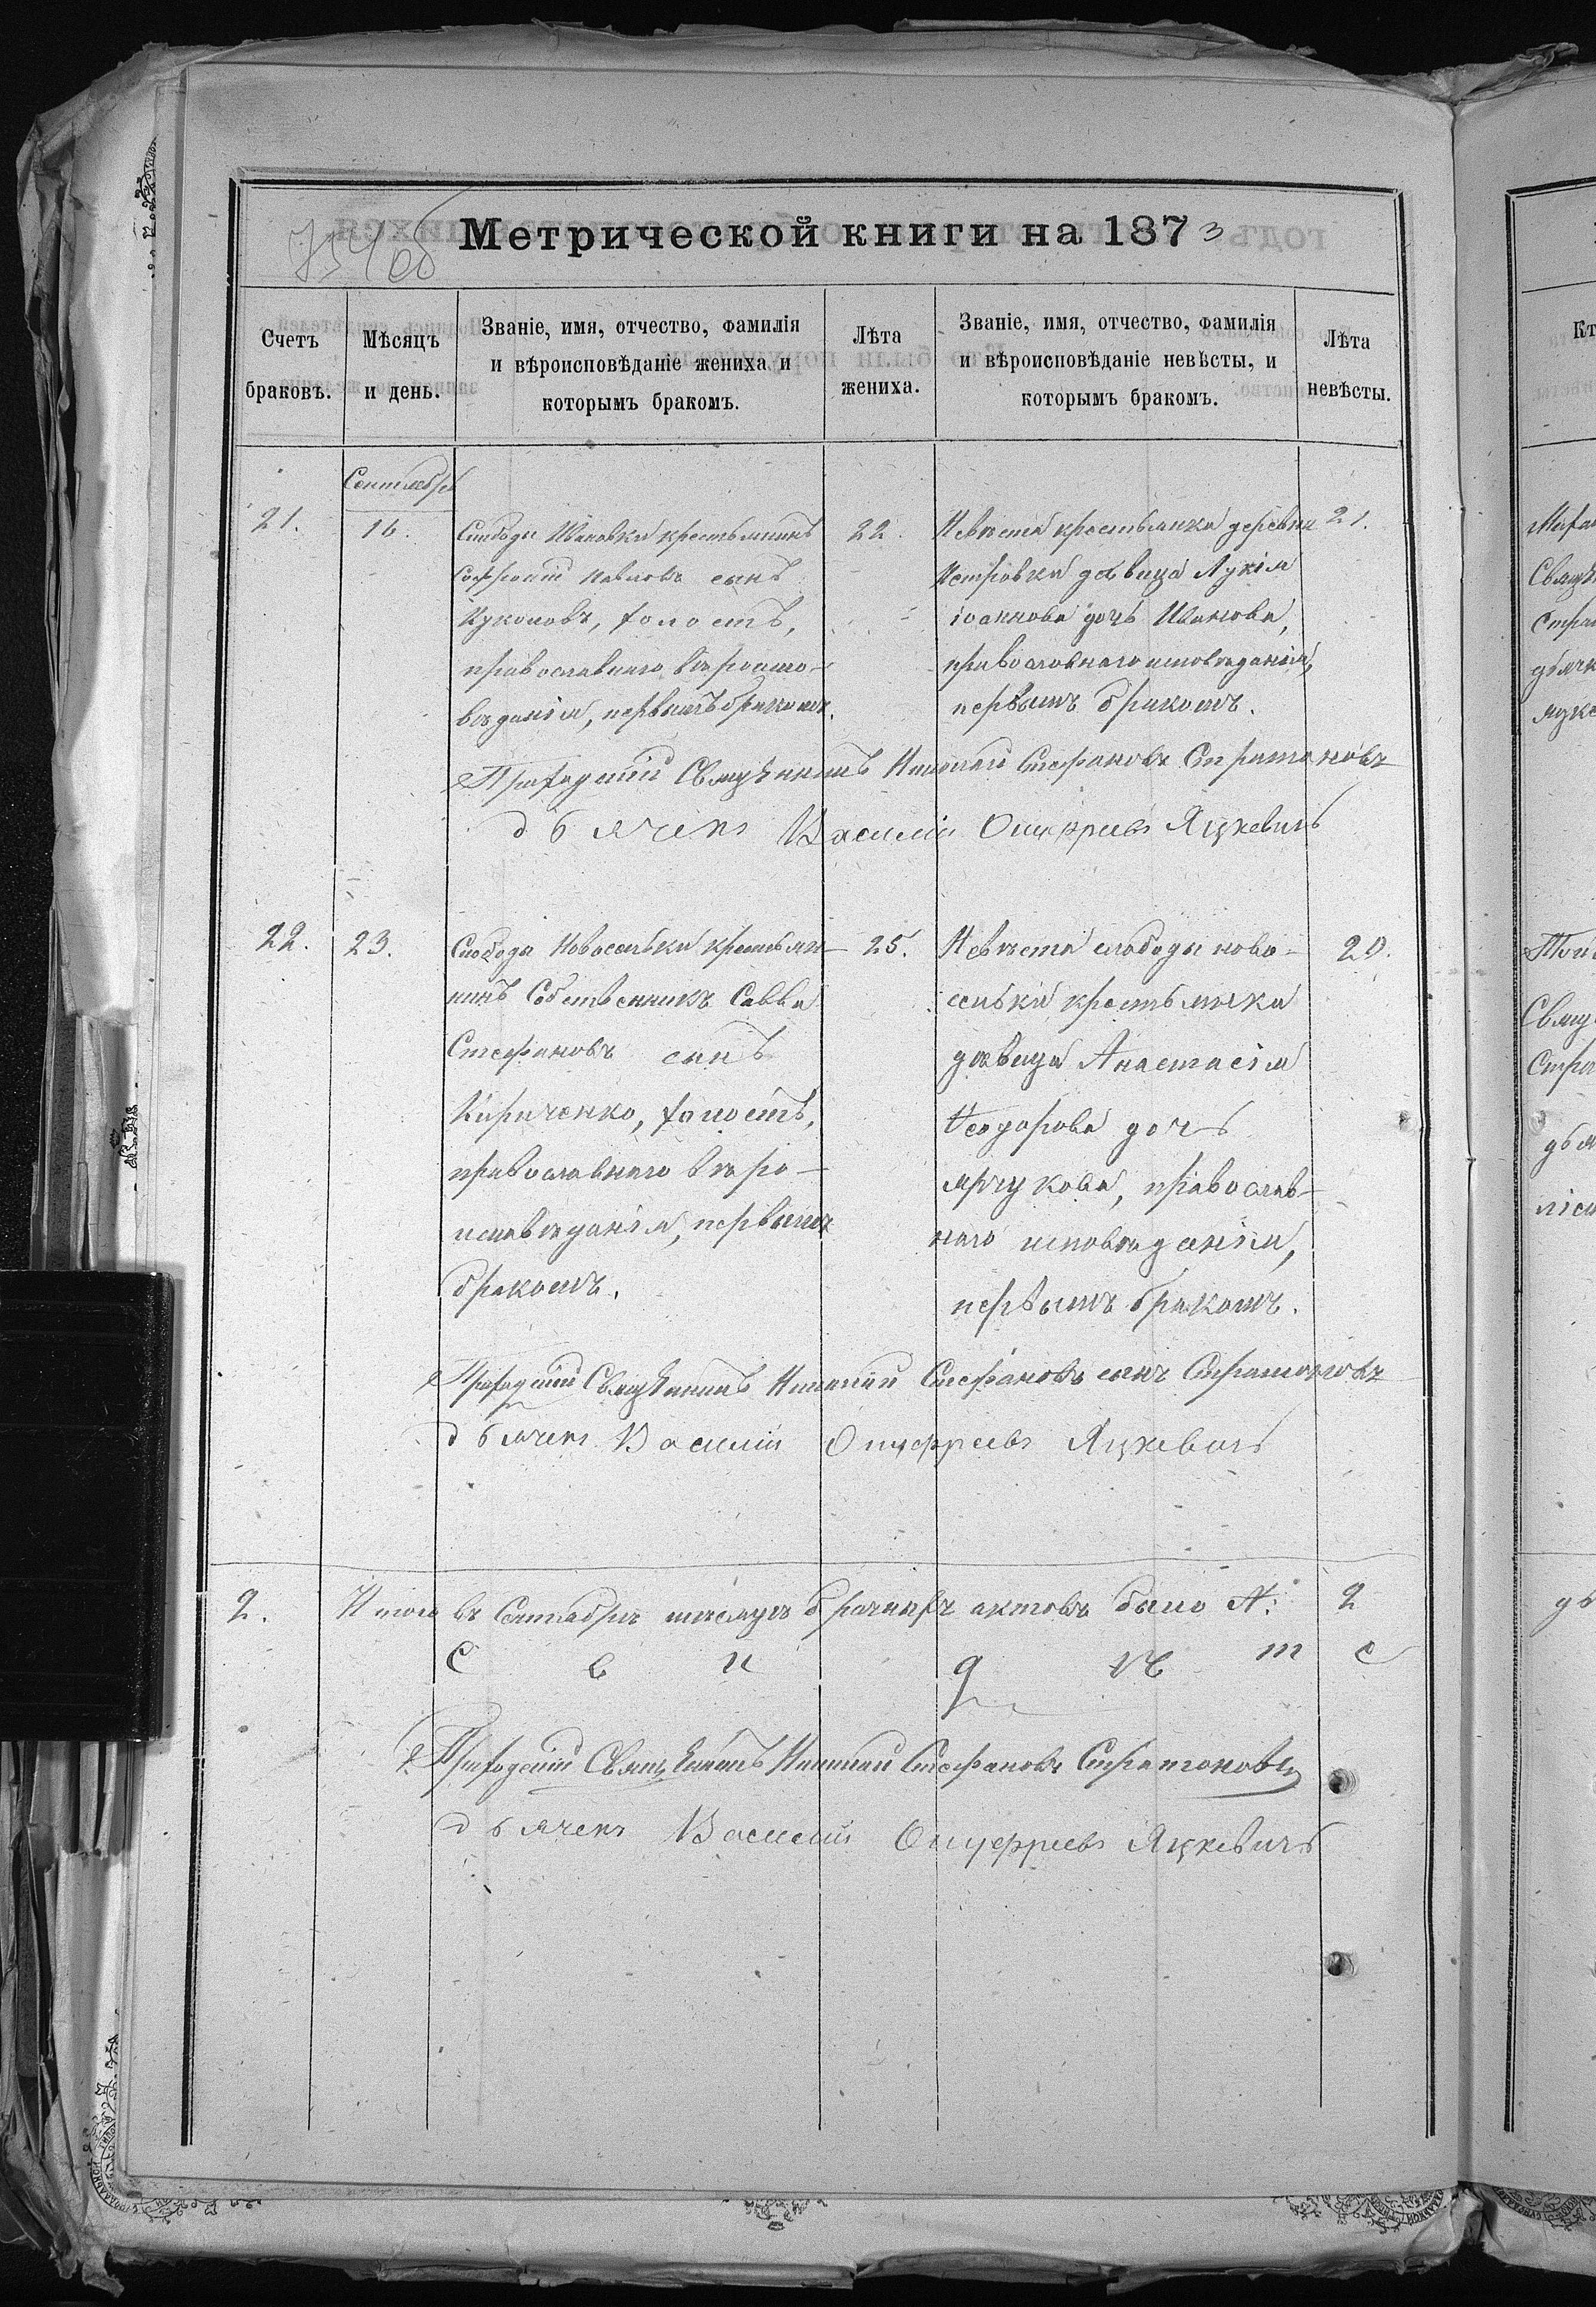 754 об
Метрической книги на 1873
Счетъ браковъ.
Мѣсяцъ и день.
Званіе, имя, отчество, фамилія
и вѣроисповѣданіе жениха и
которымъ бракомъ.
Лѣта жениха.
Званіе, имя, отчество, фамилія
и вѣроисповѣданіе невѣсты, и
которымъ бракомъ.
Лѣта невѣсты.
Сентябрь
21.
16.
Слободы Ивановки крестьянинъ
Софроній Павловъ сынъ
Куколовъ, холостъ,
православнаго вѣроиспо-
вѣданія, первымъ бракомъ.
22.
Невѣста крестьянка деревни
Петровки дѣвица Лукія
Іоаннова дочь Иванова,
православнаго исповѣданія,
первымъ бракомъ.
21.
Приходскій Священникъ Николай Стефановъ Стратоновъ
дьячекъ Василій Онуфріевъ Яцкевичъ
22.
23.
Слободы Новоселовки крестья-
нинъ Собственникъ Савва
Стефановъ сынъ
Кириченко, холостъ,
православнаго вѣро-
исповѣданія, первымъ
бракомъ.
25.
Невѣста слободы ново-
селовки крестьянка
дѣвица Анастасія
Ѳеодорова дочь
православ-
наго исповѣданія,
первымъ бракомъ.
20.
Приходскій Священникъ Николай Стефановъ сынъ Стратоновъ
дьячекъ Василій Онуфріевъ Яцкевичъ
2.
Итого въ Сентябрѣ мѣсяцѣ брачныхъ актовъ было №: 2
Приходскій Священникъ Николай Стефановъ Стратоновъ
дьячекъ Василій Онуфріевъ Яцкевичъ